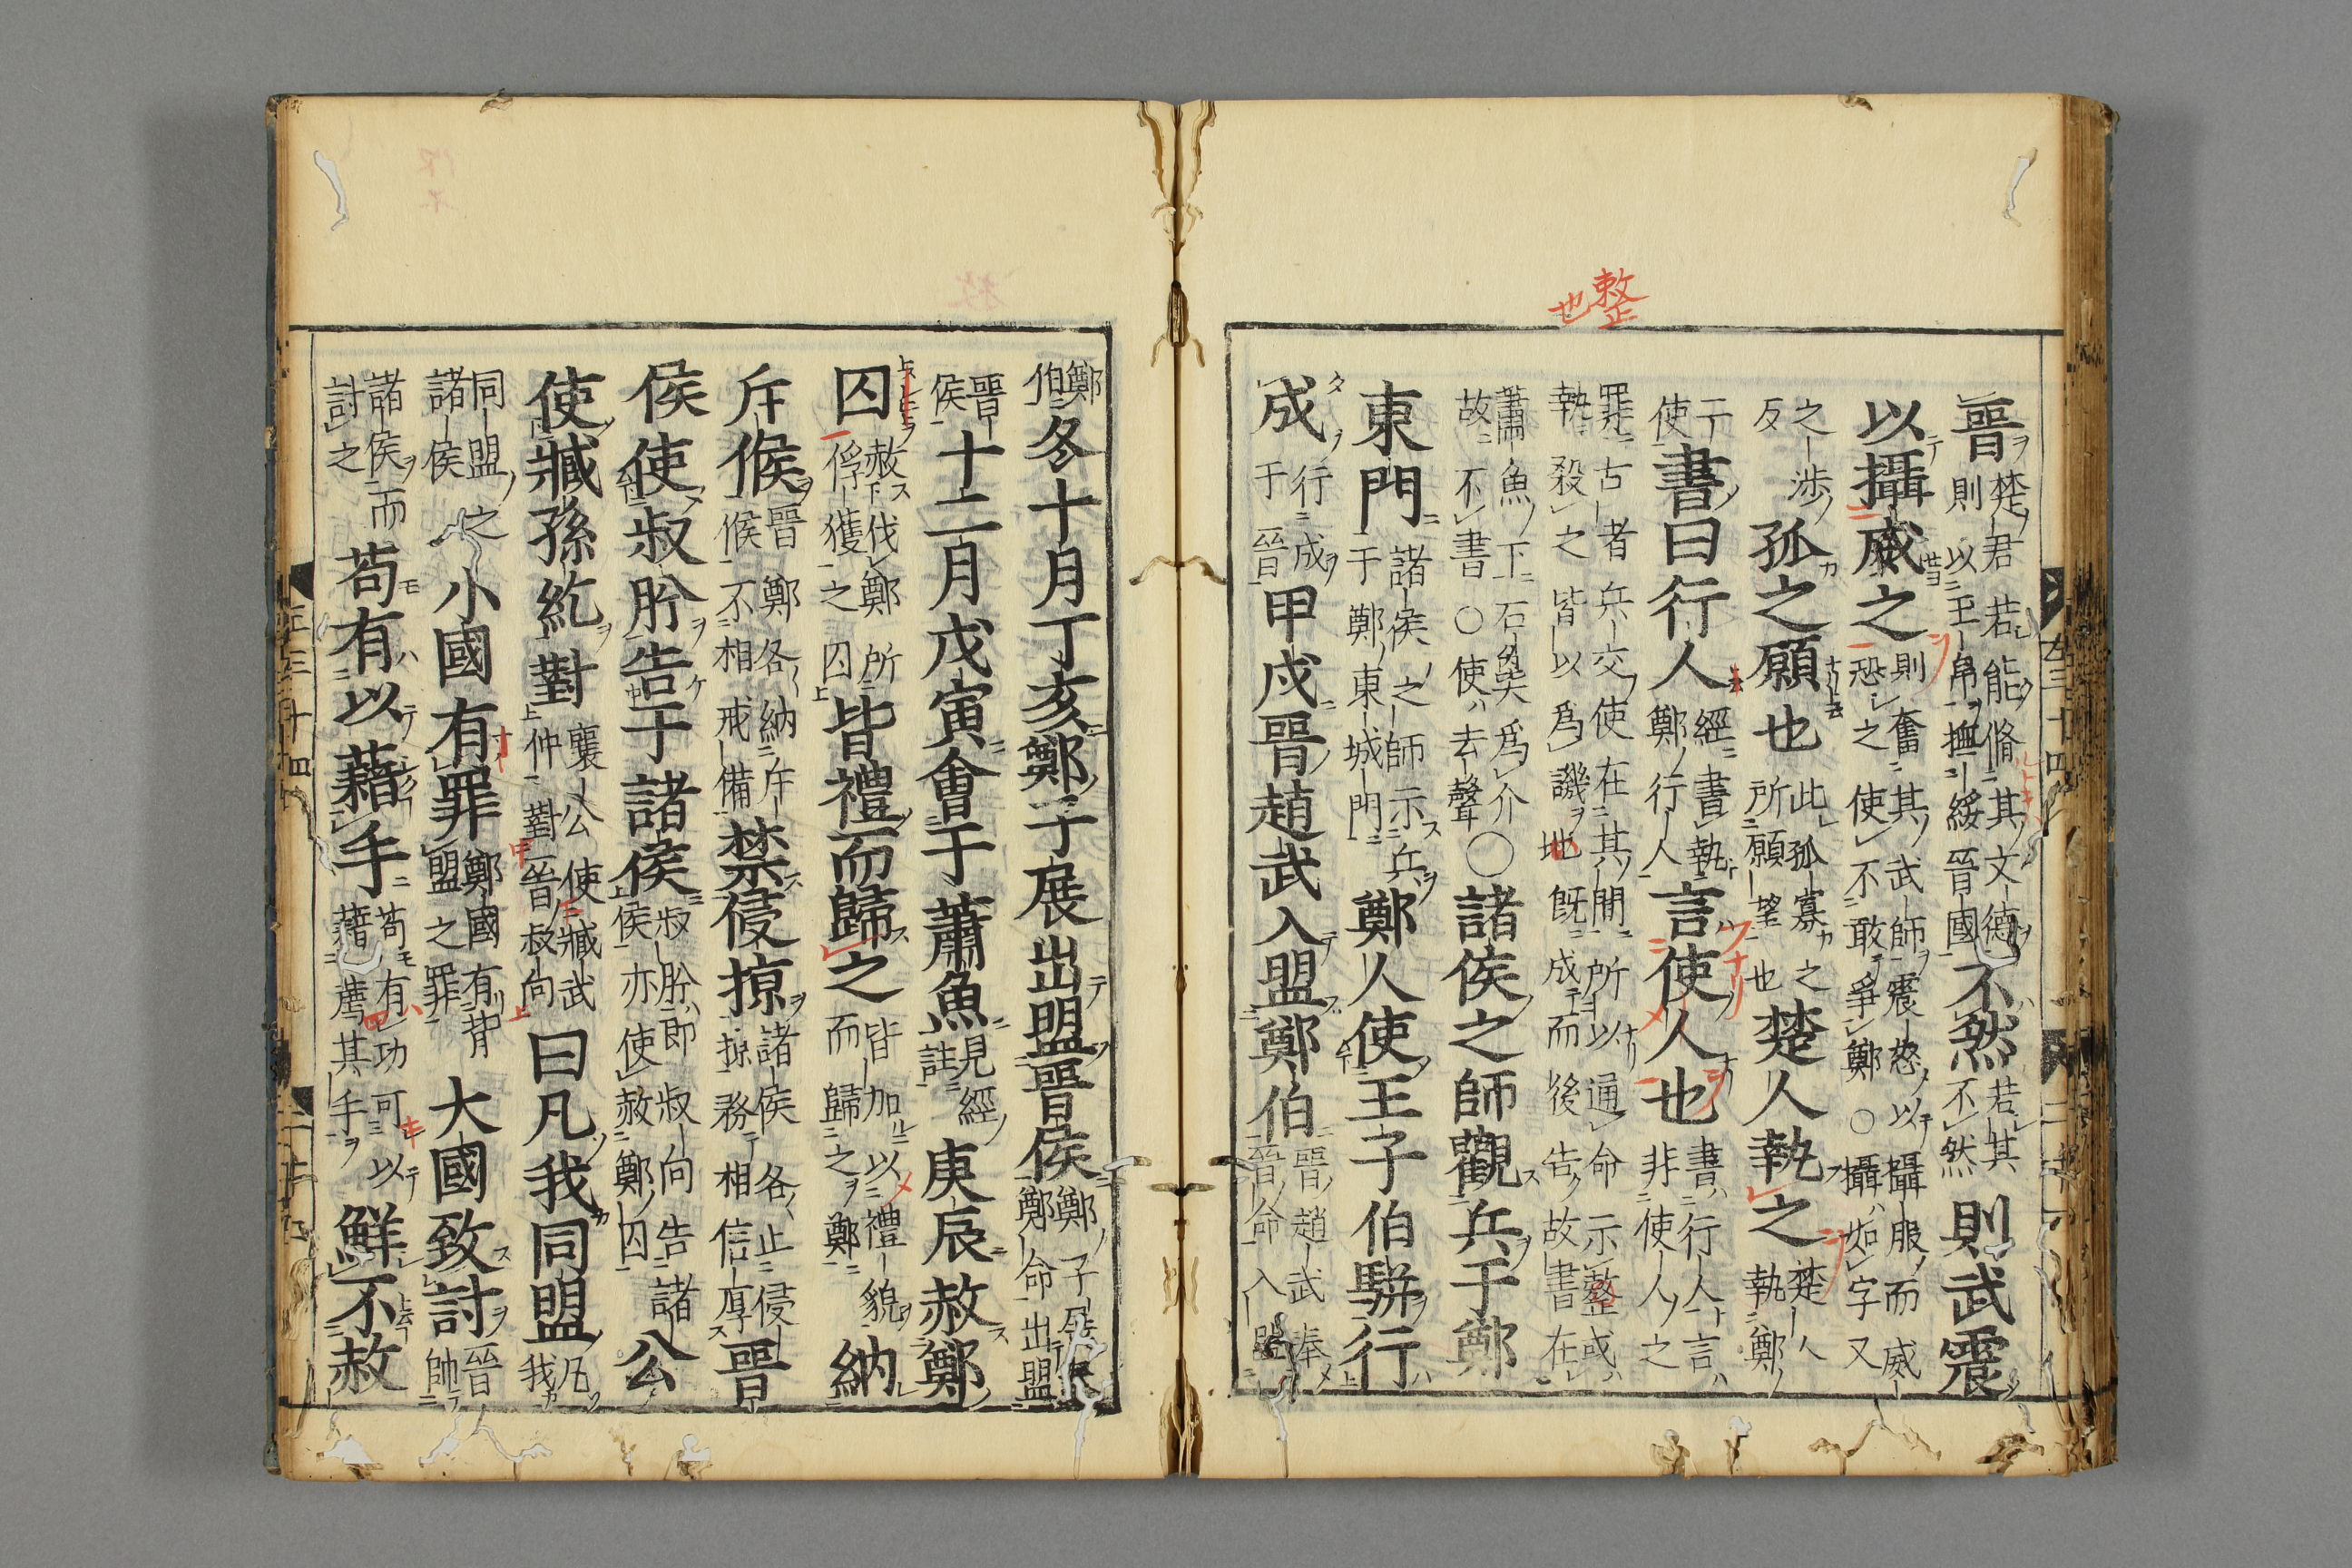 整
也
晋楚君若能脩其文德則以玉帛撫綏晋國不然若其不然則武震
以攝威之則奮其武師震怒以攝服而威恐之使不敢爭鄭〇攝如字又
之渉反孤之願也此孤寡之所願望也楚人執之楚人執鄭
使書曰行人經書執鄭行人言使人也書行人言非使人之
罪古者兵交使在其間所以通命示整或執殺之皆以爲譏也既成而後告故書在
蕭魚下石㚟爲介故不書〇使去聲〇諸侯之師觀兵于鄭
東門諸侯之師示兵于鄭東城門鄭人使王子伯駢行
成行成于晋甲戌晋趙武入盟鄭伯晋趙武奉晋命入盟
鄭伯冬十月丁亥鄭子展出盟晋侯鄭子展鄭命出盟
晋侯十二月戊寅會于蕭魚見經註庚辰赦鄭
囚赦伐鄭所俘獲之囚皆禮而歸之皆加以禮貌而歸之鄭納
斥候晋鄭各納斥候不相戒備禁侵掠諸侯各止侵掠務相信厚晋
侯使叔肸告于諸侯叔肸即叔向告諸侯亦使赦鄭囚公
使臧孫紇對襄公使臧武仲對晋叔向曰凡我同盟凡我
同盟之諸侯小國有罪鄭國有背盟之罪大國致討晋帥
諸侯而討之苟有以藉手苟有功可以藉薦其手鮮不赦